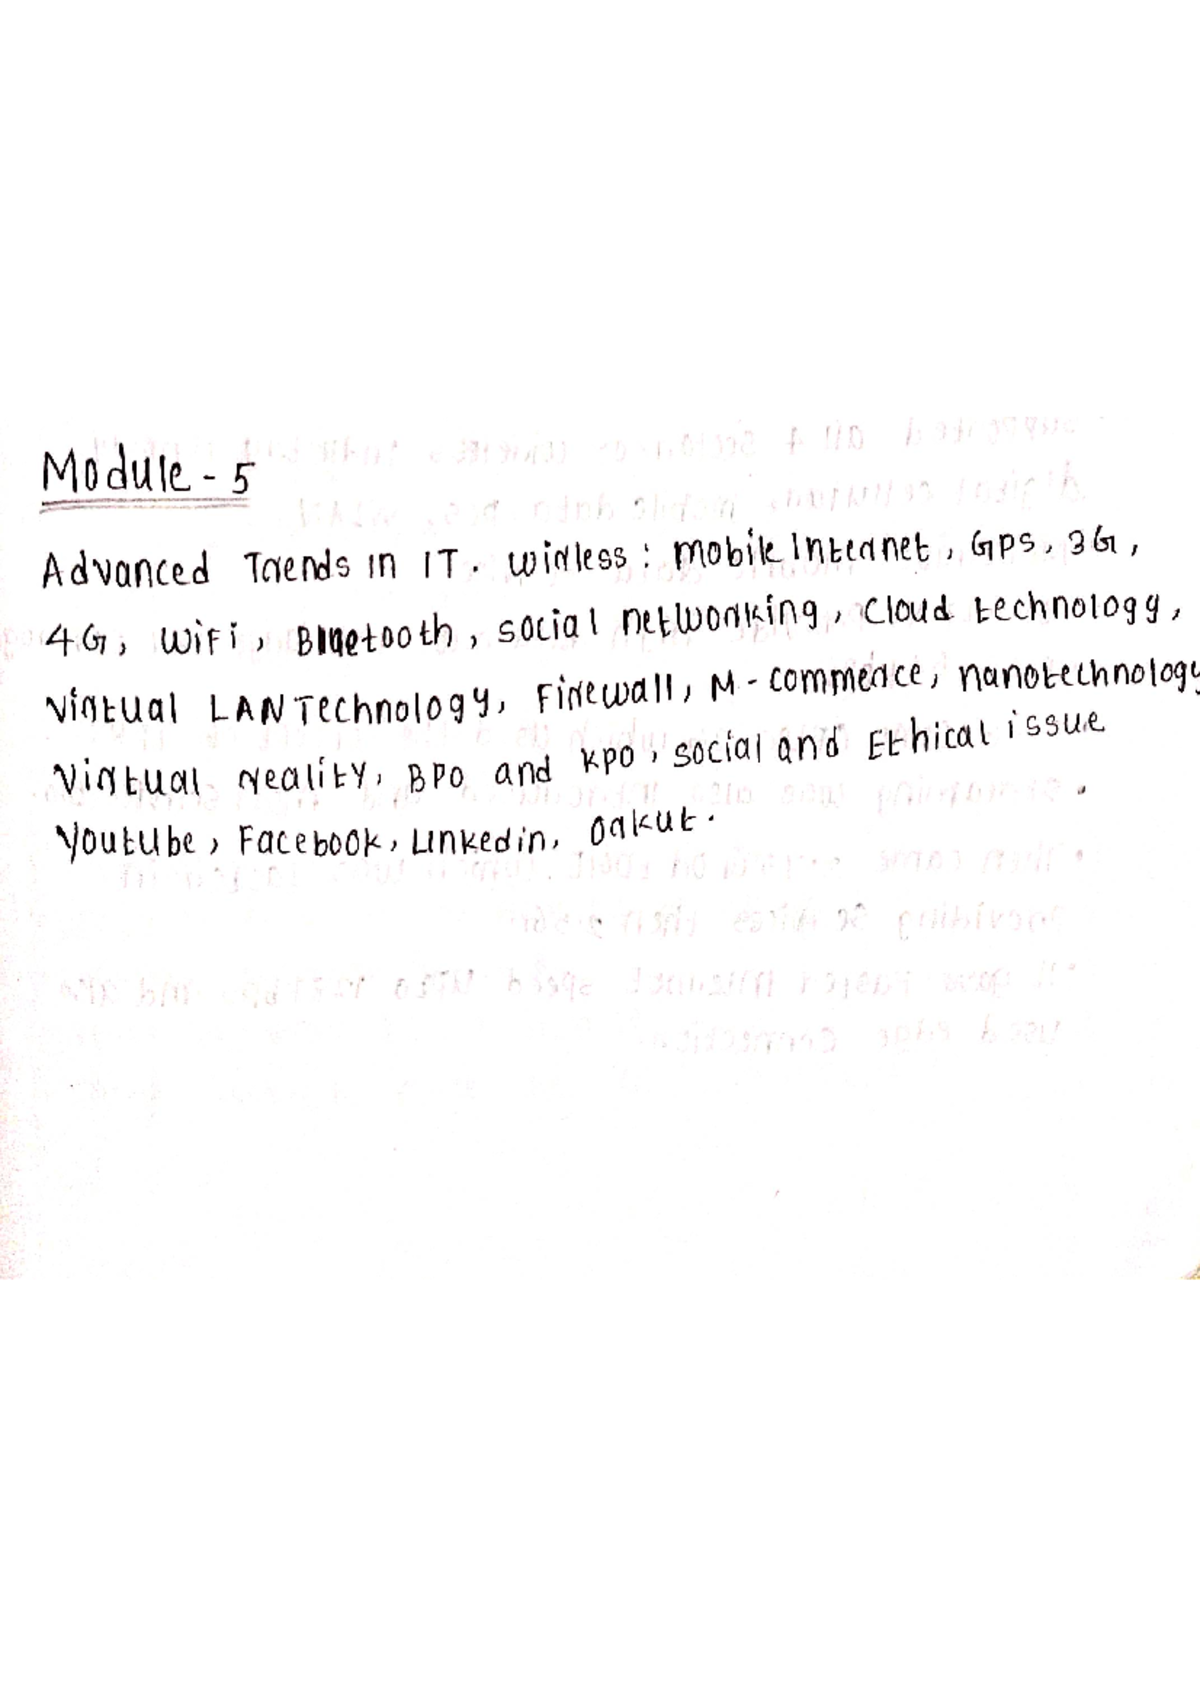 Module - 5
Advanced Trends in IT. wirless : mobile Internet, GPS, 3G,
4G, WiFi, Bluetooth, social networking, Cloud technology,
Virtual LAN Technology, Firewall, M-commerce, nanotechnology
Virtual reality, BPO and KPO, social and Ethical issue
Youtube, Facebook, Linkedin, Orkut.